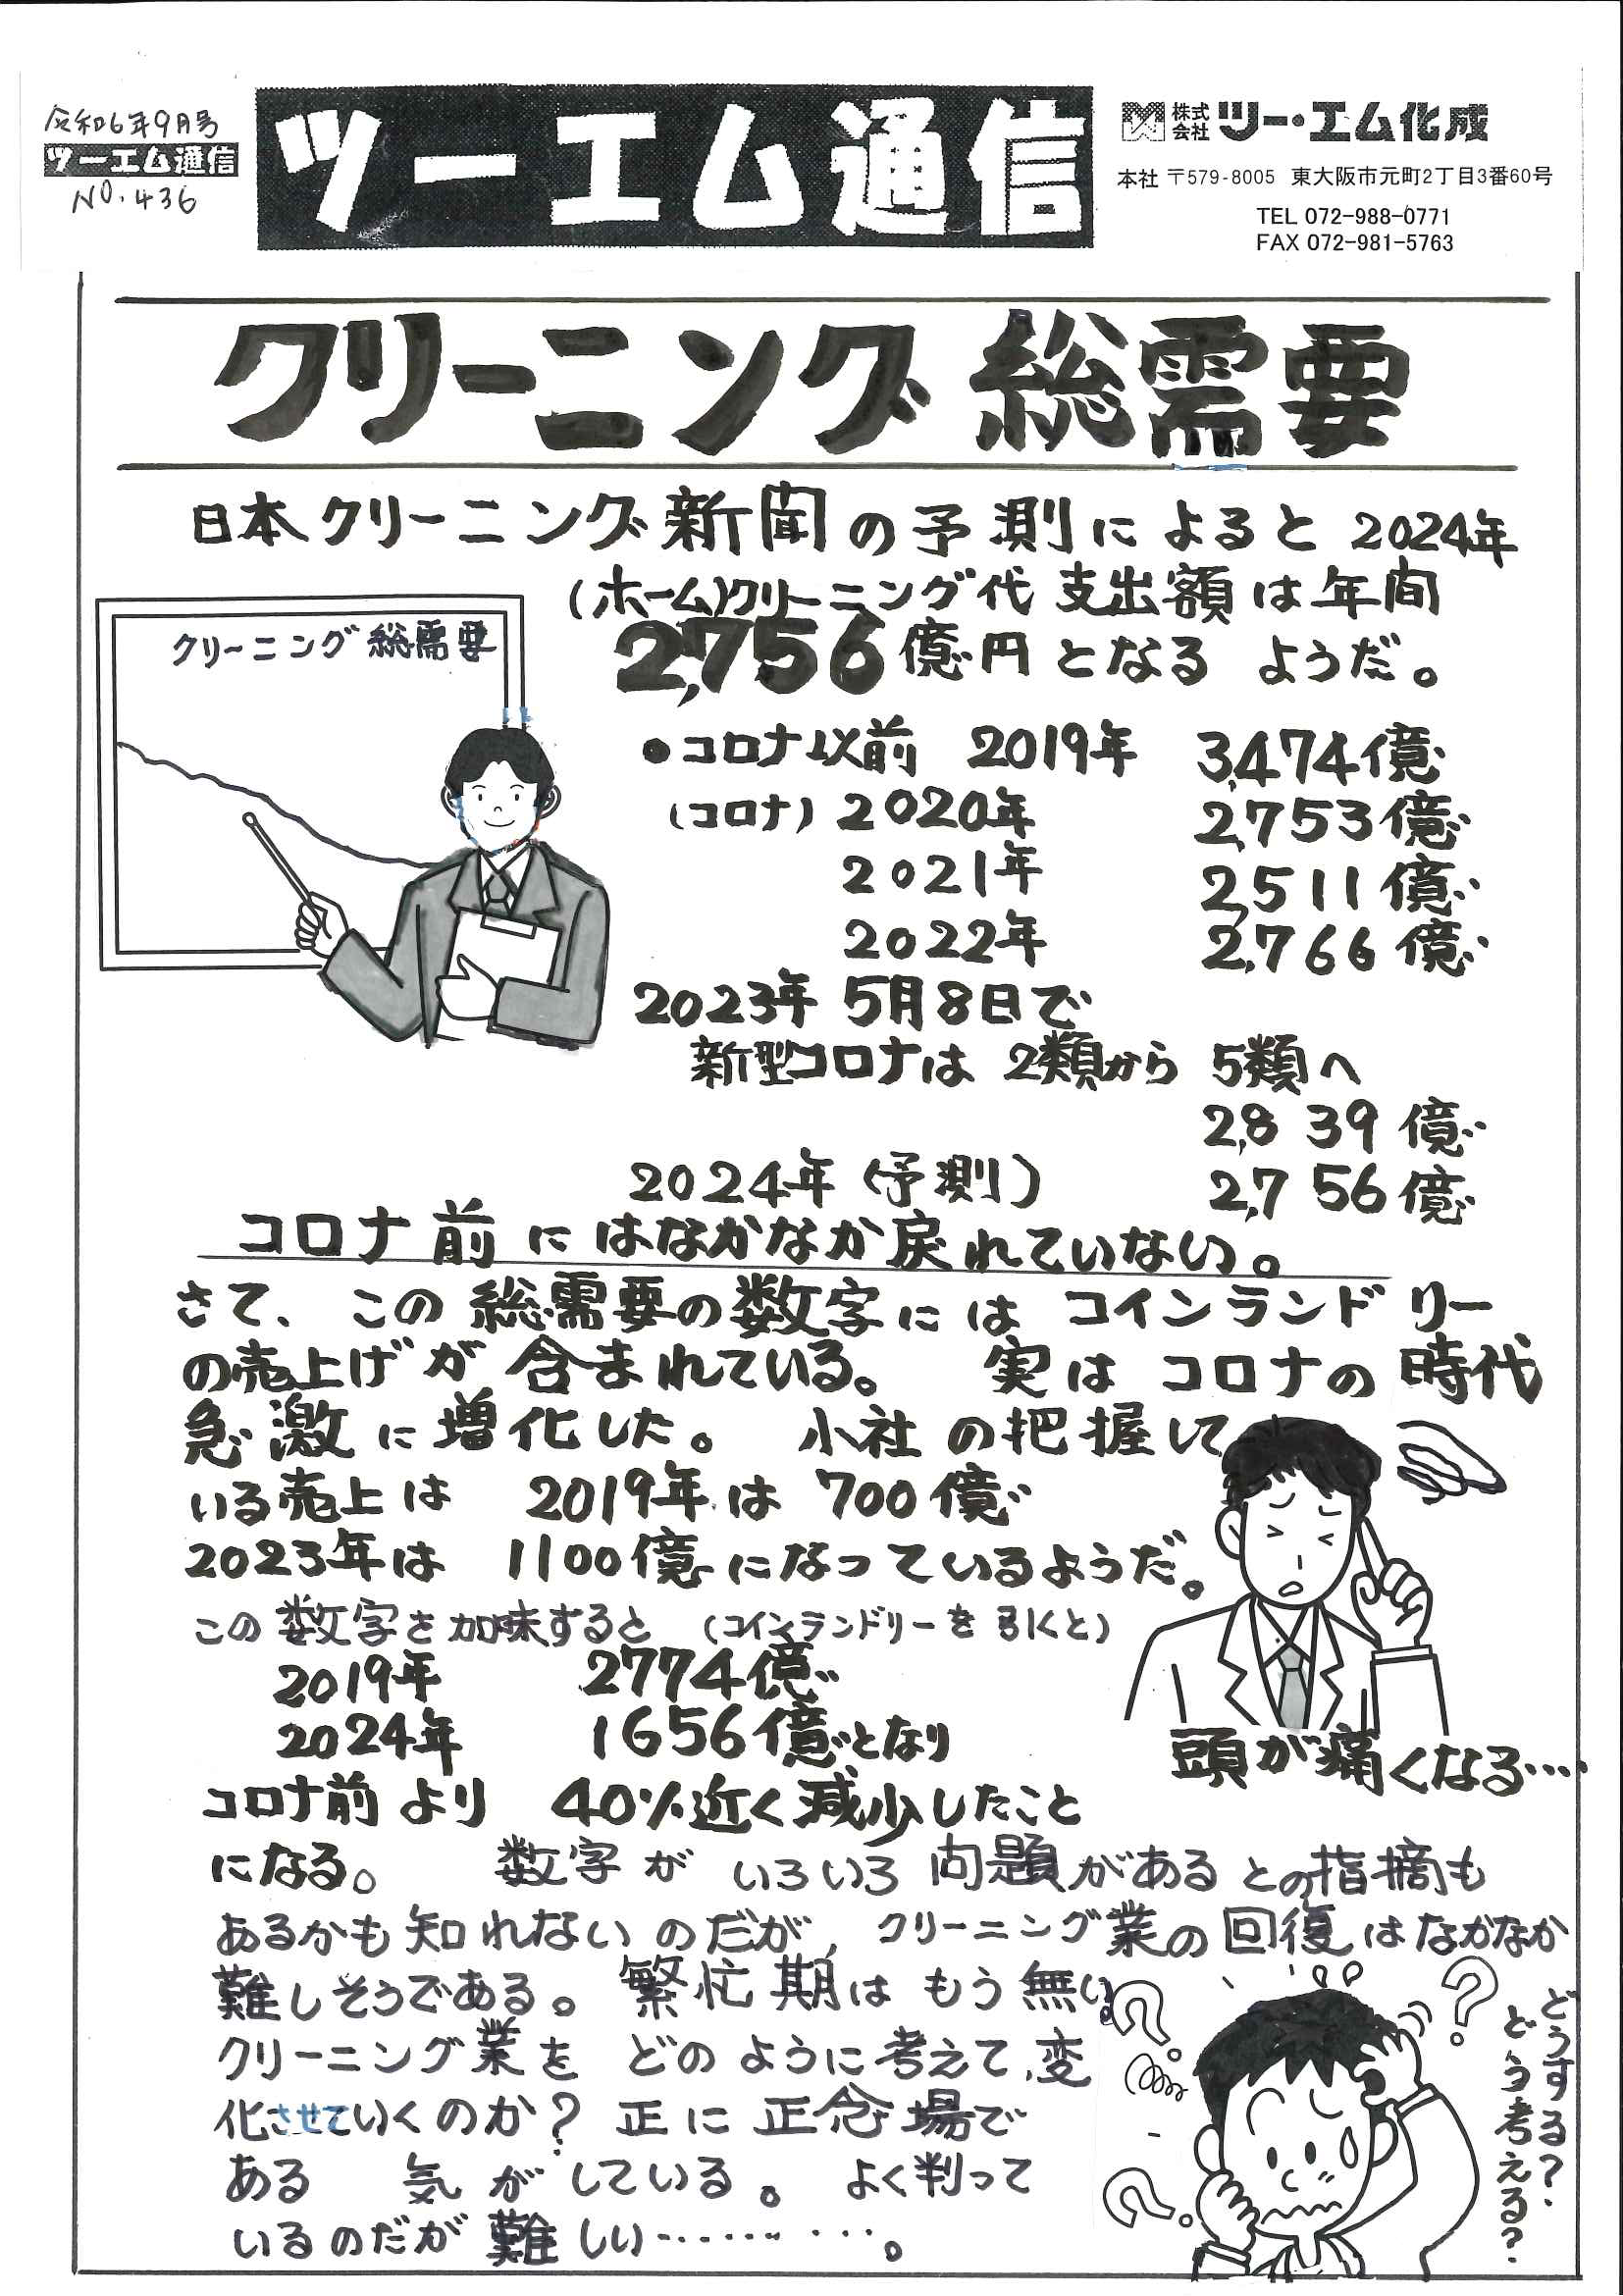 令和6年9月号
ツーエム通信
NO.436
ツーエム通信
株式会社 ツー・エム化成
本社 〒579-8005 東大阪市元町2丁目3番60号
TEL 072-988-0771
FAX 072-981-5763
クリーニング 総需要
日本クリーニング新聞の予測によると 2024年
(ホーム)クリーニング代 支出額は年間
2,756億円となる ようだ。
クリーニング総需要
●コロナ以前 2019年 3,474億
(コロナ) 2020年 2,753億
2021年 2,511億
2022年 2,766億
2023年 5月8日で
新型コロナは 2類から 5類へ
2,839億
2024年(予測) 2,756億
コロナ前にはなかなか戻れていない。
さて、この総需要の数字には コインランドリー
の売上げが含まれている。 実はコロナの時代
急激に増化した。 小社の把握して
いる売上は 2019年は 700億
2023年は 1100億になっているようだ。
この数字を加味すると (コインランドリーを引くと)
2019年 2774億
2024年 1656億となり
頭が痛くなる…
コロナ前より 40%近く減少したこと
になる。 数字が いろいろ問題があるとの指摘も
あるかも知れないのだが、クリーニング業の回復はなかなか
難しそうである。繁忙期はもう無い。
クリーニング業を どのように考えて、変
化させていくのか? 正に正念場で
ある 気がしている。 よく判って
いるのだが難しい………。
どうする?
どう考える?